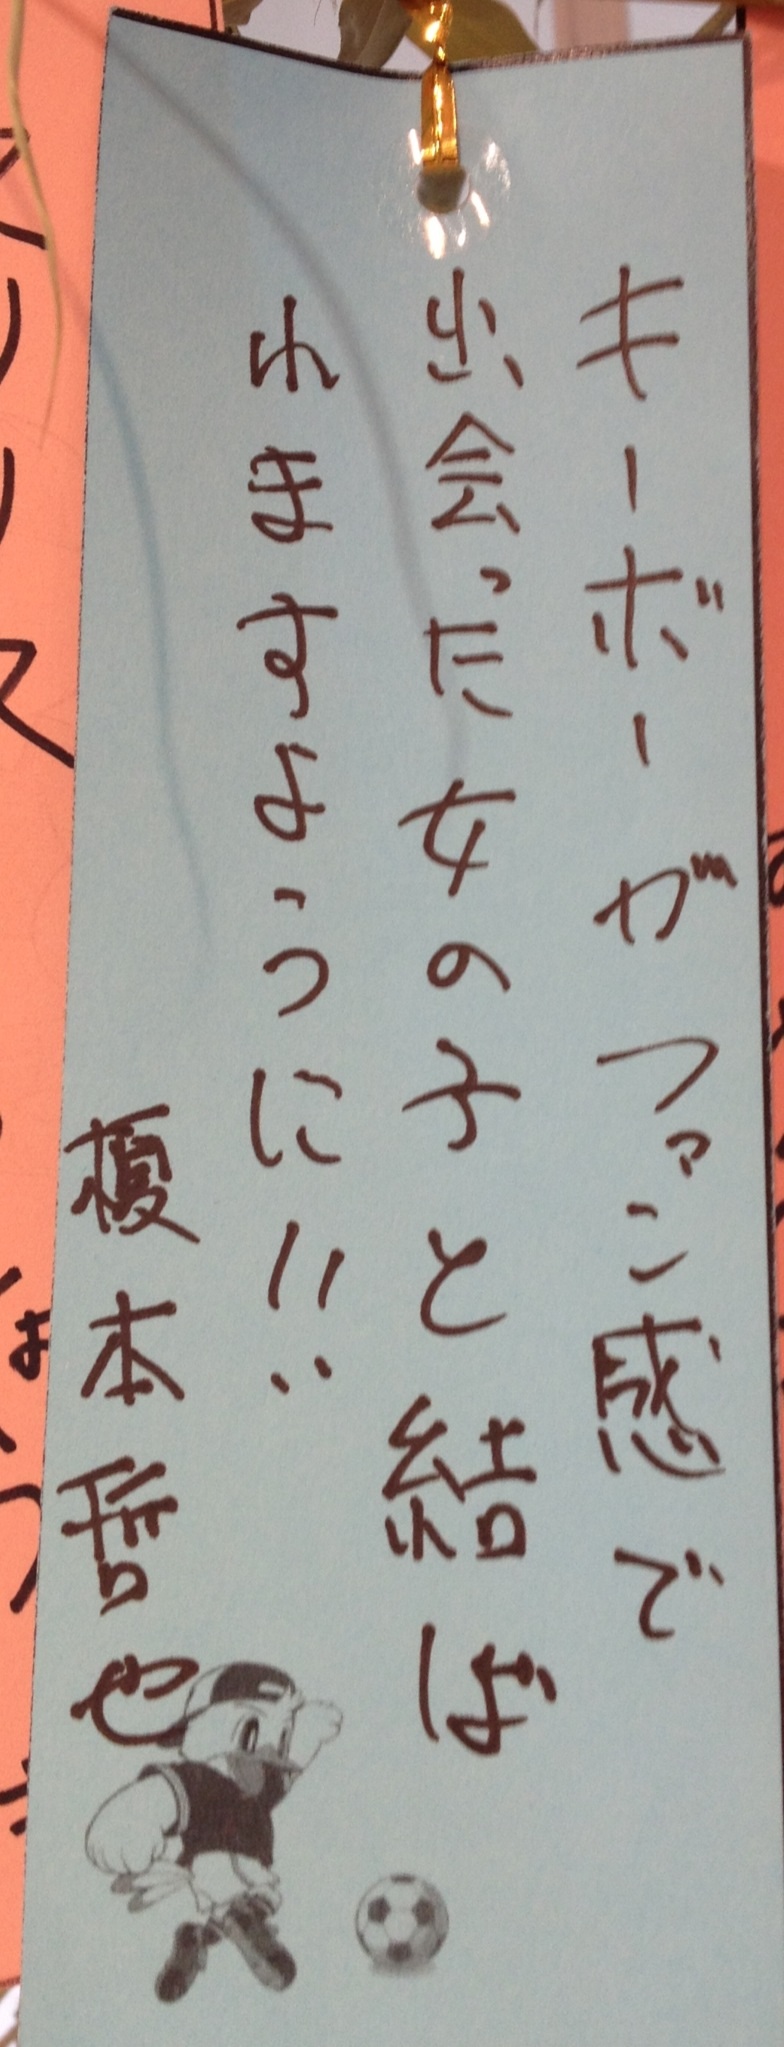 キーボーがファン感で
出会った女の子と結ば
れますように!!
榎本哲也